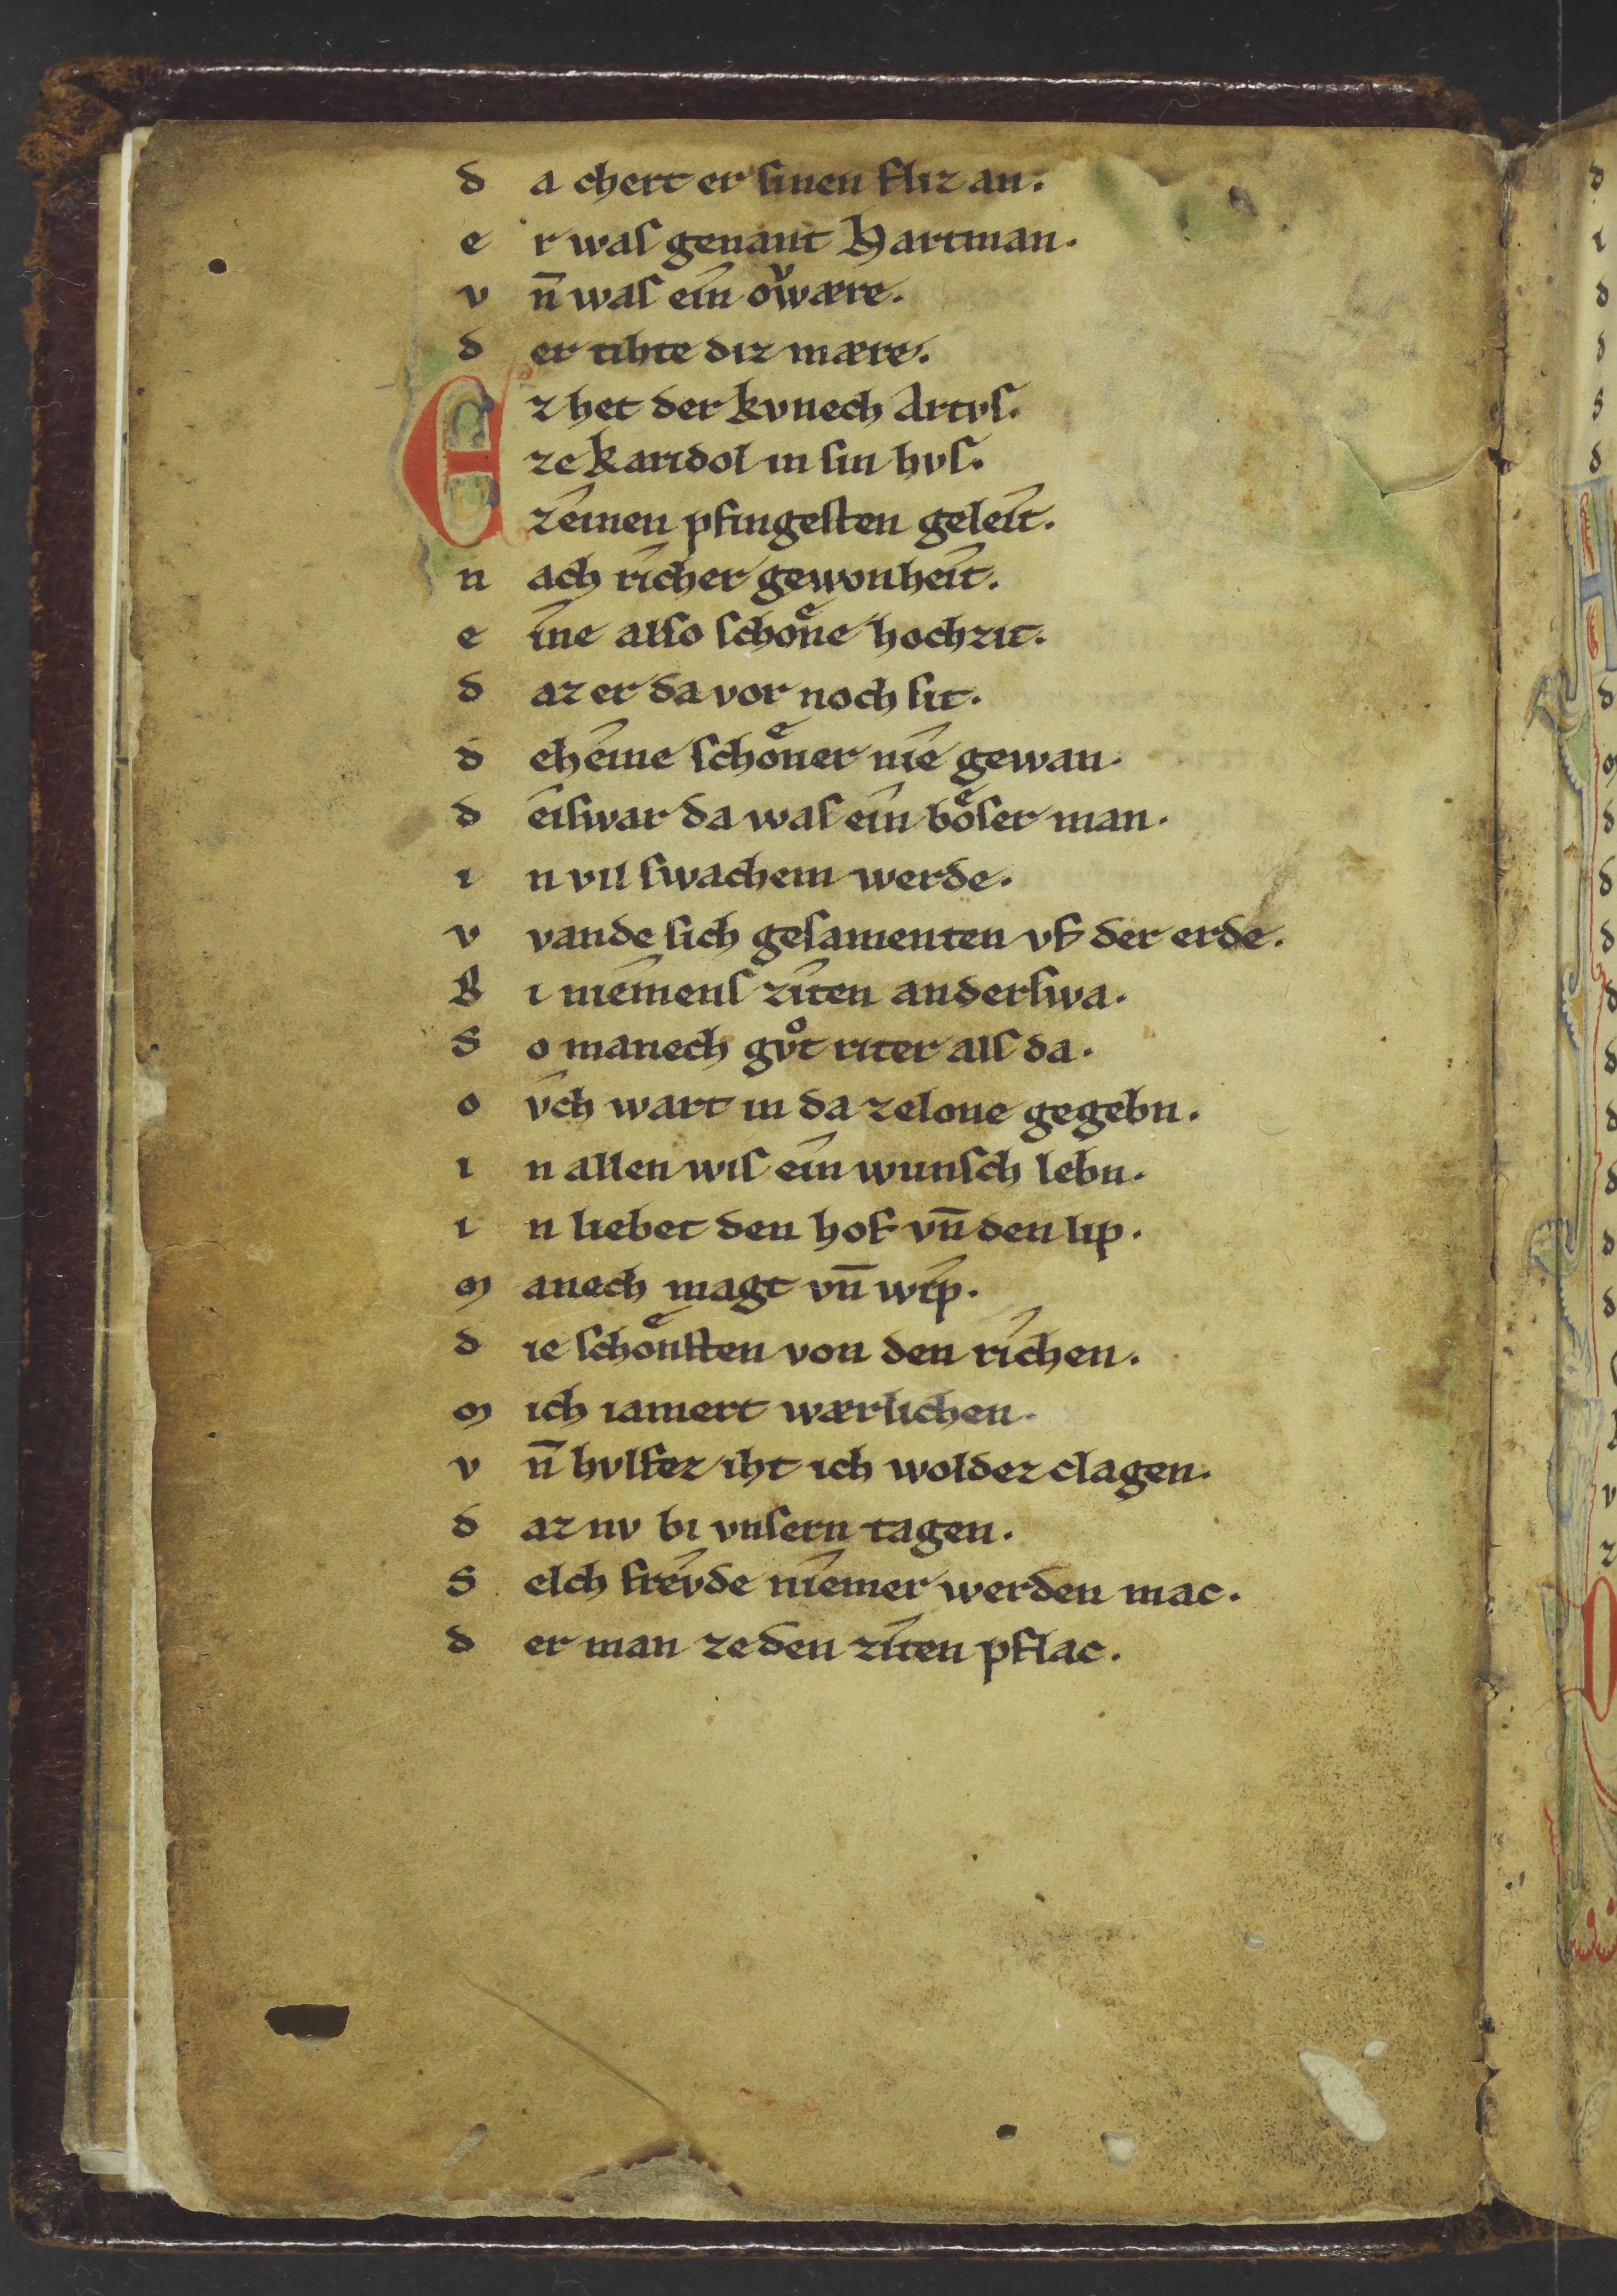 d a chert er sinen fliz an.
e r waſ genant Hartman.
v n̄ waſ ein oͮwære.
d er tihte diz mære.
E z het der kvnech Artvſ.
ze karidol in ſin hvſ.
zeinen pfingeſten geleit.
n ach richer gewonheit.
e ine alſo ſchoͤne hochzit.
d az er da vor noch ſit.
d eheine ſchoͤner nie gewan.
d eiſwar da waſ ein boͤſer man.
i n vil ſwachem werde.
v vande ſich geſamenten vf der erde.
B i niemenſ ziten anderſwa.
S o manech gvͦt riter alſ da.
o vch wart in da ze lone gegebn.
i n allen wiſ ein wunſch lebn.
i n liebet den hof vn̄ den lip.
m anech magt vn̄ wip.
d ie ſchoͤnſten von den richen.
m ich iamert wærlichen.
v n̄ hvlfez iht ich woldez clagen.
d az nv bi vnſern tagen.
S elch frevde niemer werden mac.
d er man ze den ziten pflac.